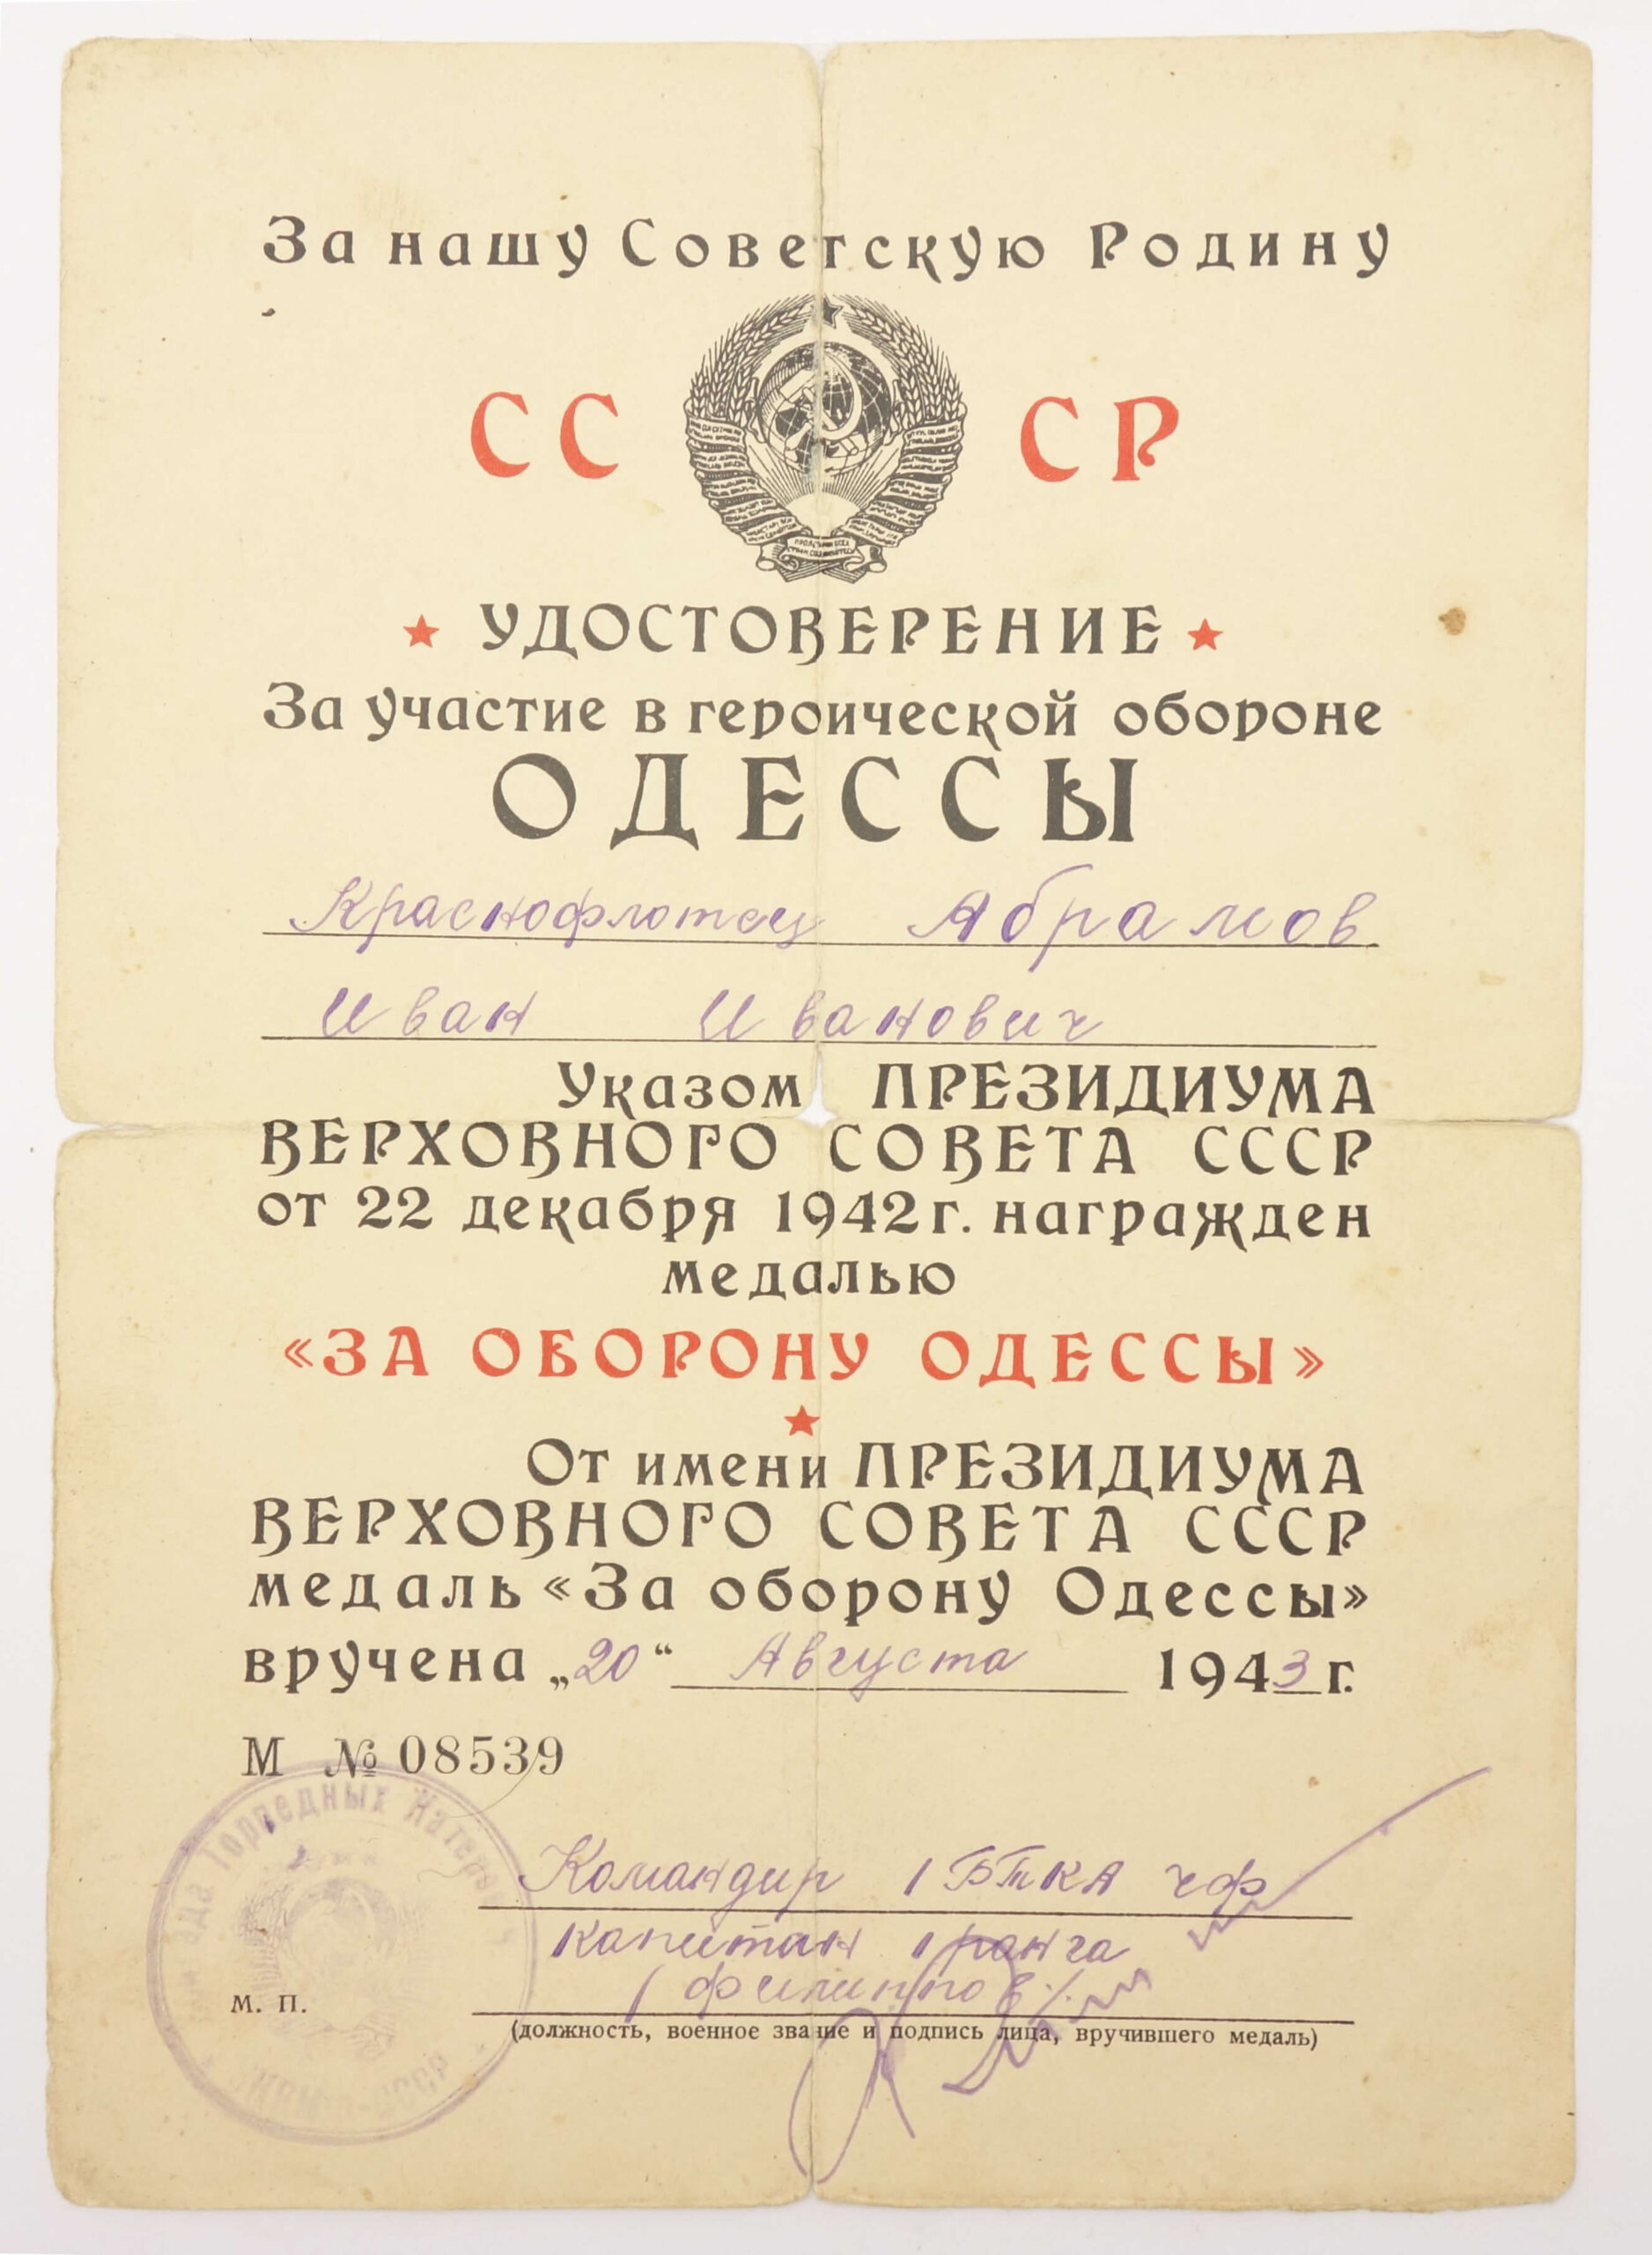 За нашу Советскую Родину
СС СР
УДОСТОВЕРЕНИЕ
За участие в героической обороне
ОДЕССЫ
Краснофлотец Абрамов
Иван Иванович
Указом ПРЕЗИДИУМА
ВЕРХОВНОГО СОВЕТА СССР
от 22 декабря 1942 г. награжден
медалью
«ЗА ОБОРОНУ ОДЕССЫ»
От имени ПРЕЗИДИУМА
ВЕРХОВНОГО СОВЕТА СССР
медаль «За оборону Одессы»
вручена „20“ Августа 1943 г.
М № 08539
Торпедных Катеров
Командир 1 БТКА ЧФ
капитан 1 ранга
/Филиппов/
М. П.
(должность, военное звание и подпись лица, вручившего медаль)
СССР